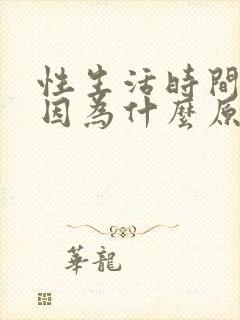 性生活時間
因為什麼原
華龍